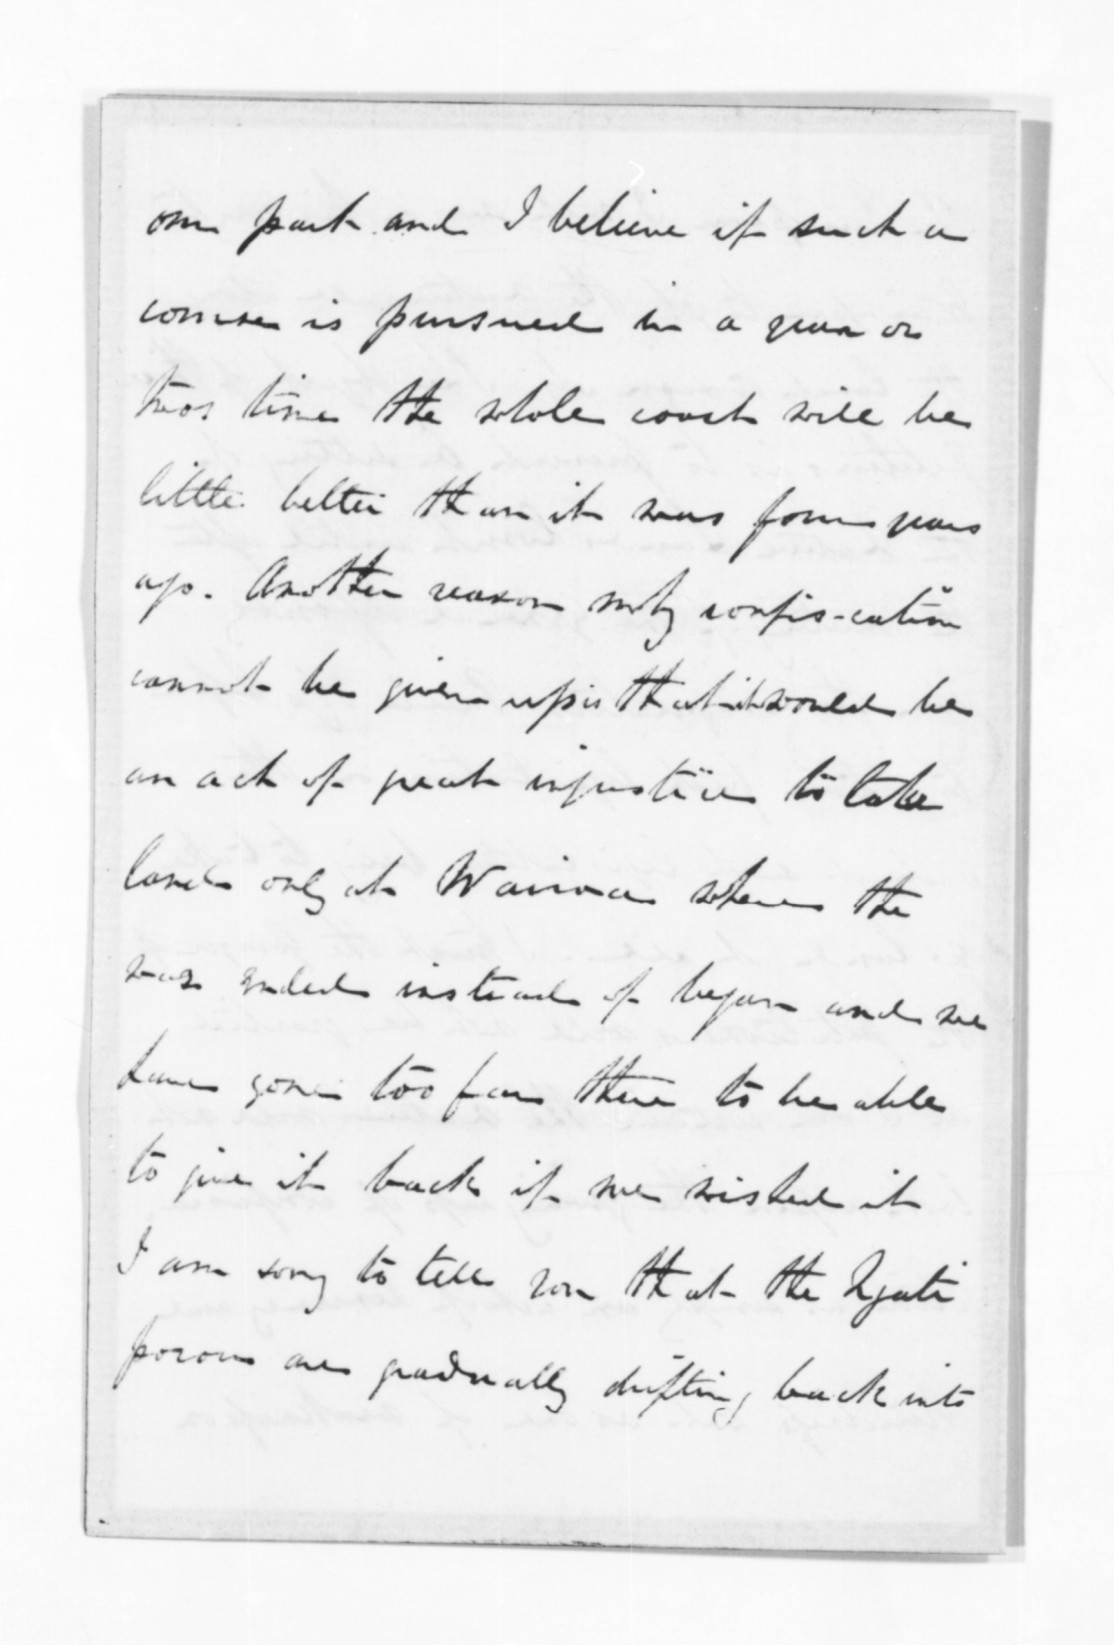 our part and I believe if such a
course is pursued in a year or
two's time the whole coast will be
little better than it was four years
ago. Another reason why confis-cation
cannot be given up is that it would be
an act of great injustice to take
land only at Wairoa where the
war ended instead of began and we
have gone too far there to be able
to give it back if we wished it
I am sorry to tell you that the Ngati
porou are gradually drifting back into